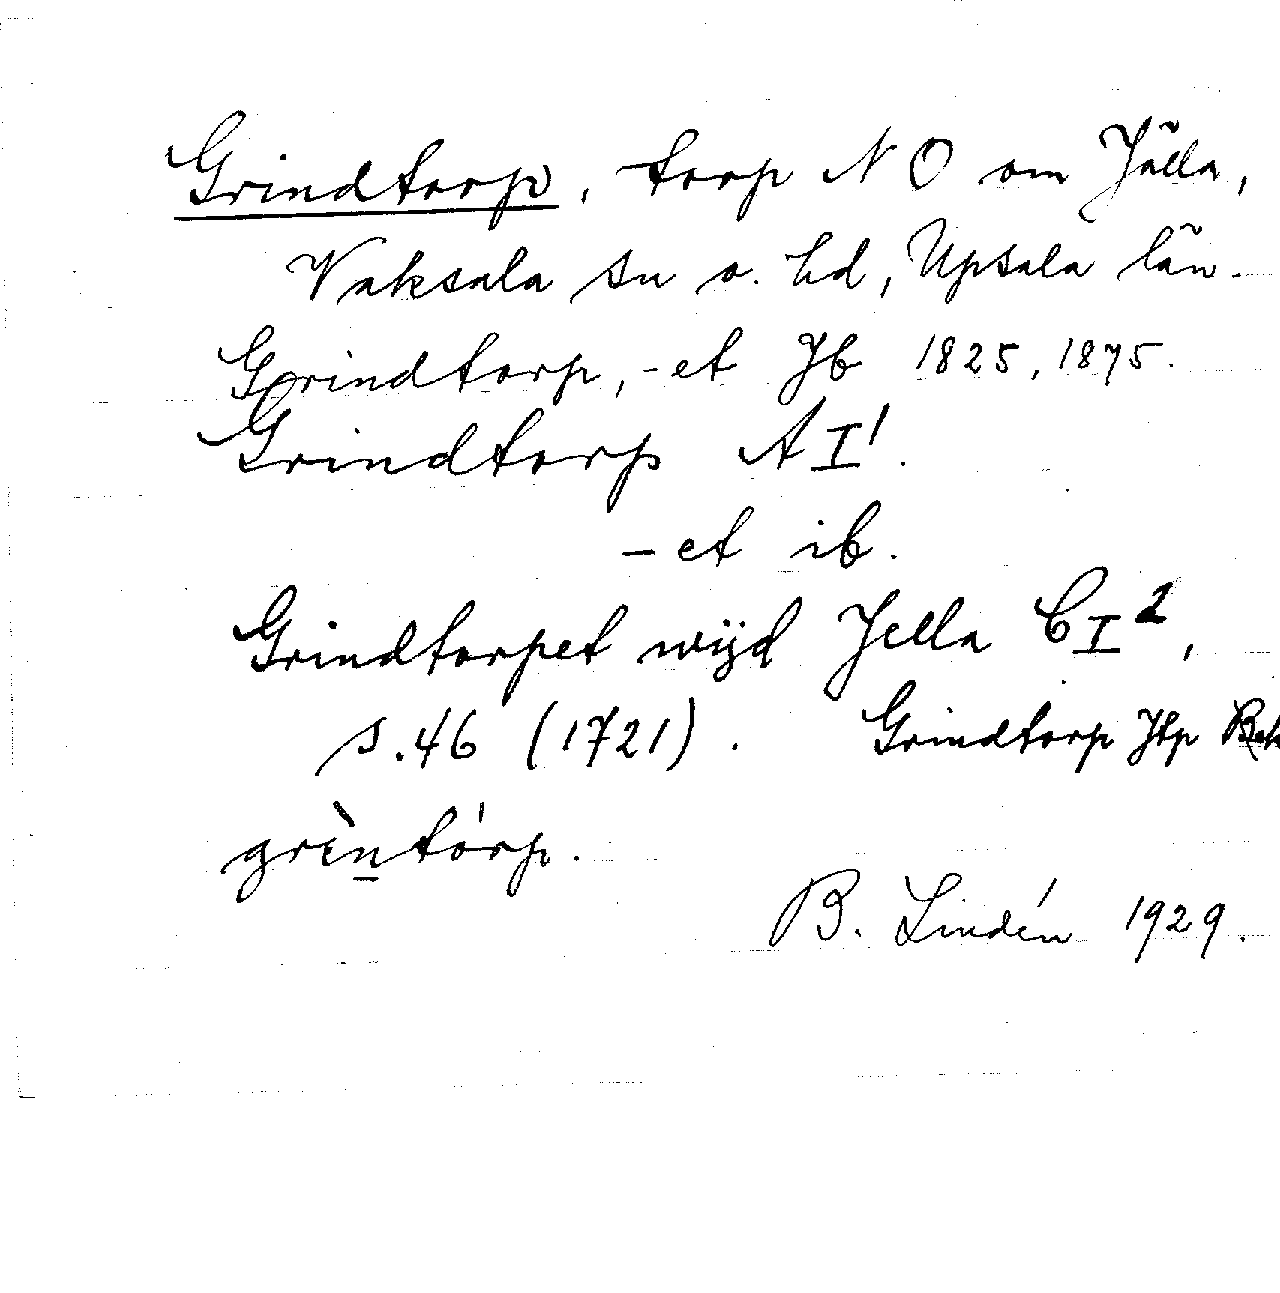 Grindtorp, torp NO om Jälla,
Vaksala sn o. hd, Upsala län.
Grindtorp, -et Jb 1825, 1875.
Grindtorp A I¹.
-et ib.
Grindtorpet wijd Jella C I²,
s. 46 (1721). Grindtorp Jtp
grìntórp.
B. Lindén 1929.